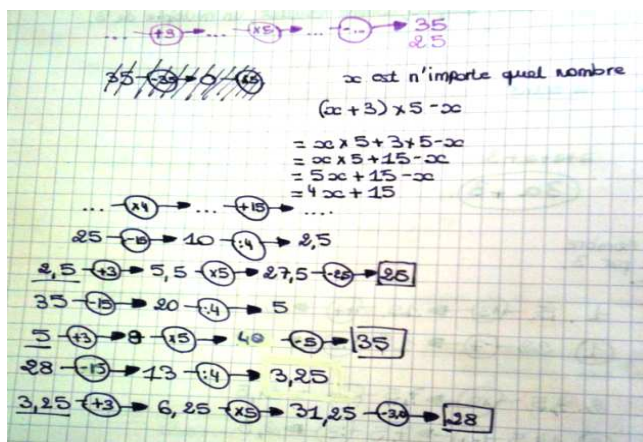 ... +3 → ... ×5 → ... -... → 35
25
35 -35 → 0 ×5
x est n'importe quel nombre
(x+3)×5-x
= x×5+3×5-x
= x×5+15-x
= 5x+15-x
= 4x+15
... ×4 → ... +15 → ....
25 -15 → 10 :4 → 2,5
2,5 +3 → 5,5 ×5 → 27,5 -2,5 → 25
35 -15 → 20 :4 → 5
5 +3 → 8 ×5 → 40 -5 → 35
28 -15 → 13 :4 → 3,25
3,25 +3 → 6,25 ×5 → 31,25 → 28